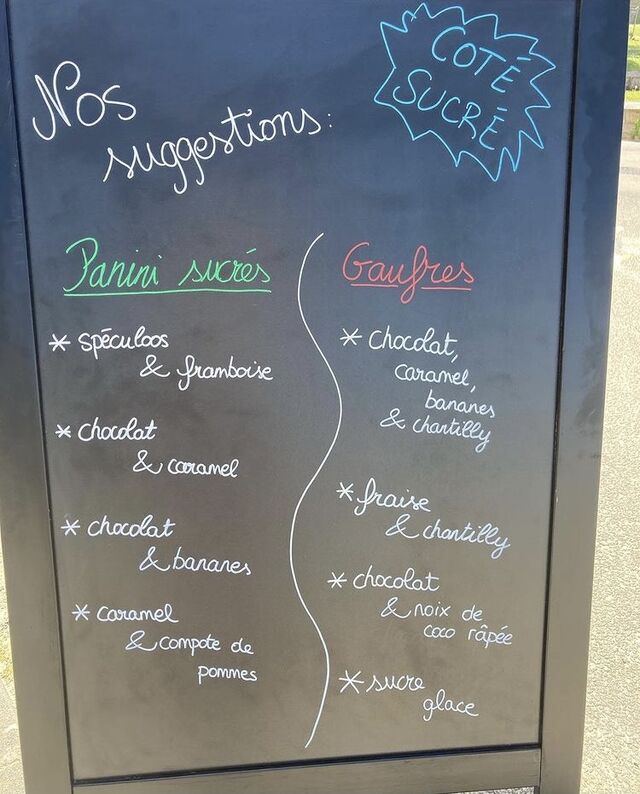 Nos
suggestions:
COTÉ
SUCRÉ
Panini sucrés
* spéculoos
& framboise
* chocolat
& caramel
* chocolat
& bananes
* caramel
& compote de
pommes
Gaufres
* chocolat,
caramel,
bananes
& chantilly
* fraise
& chantilly
* chocolat
& noix de
coco râpée
* sucre
glace